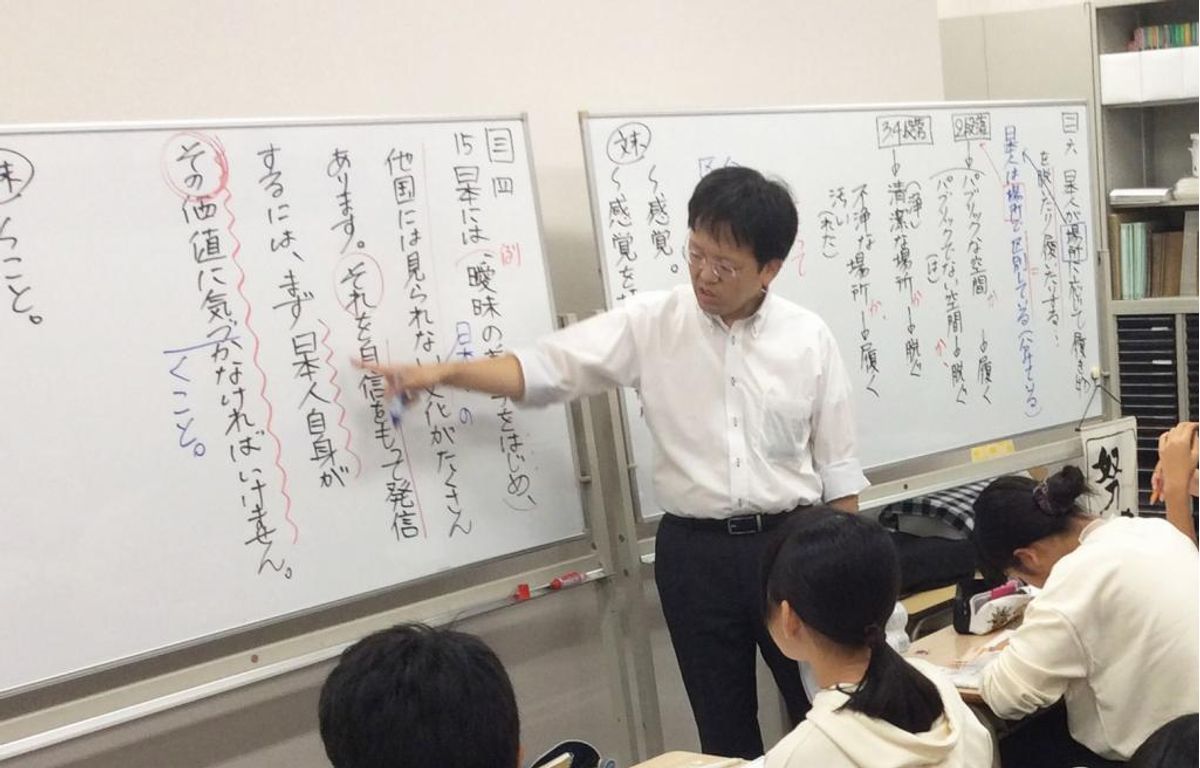 三 六 日本人が場所に応じて履き物
を脱いだり履いたりする。
日本人は場所で区別している(分けている)
2段落
パブリックな空間 → 履く
(は)
パブリックでない空間 → 脱ぐ
か
3・4段落
(浄)
清潔な場所 → 脱ぐ
か
不浄な場所 → 履く
か
汚い(れた)
って
文末
〜感覚。
〜感覚を
三 四
例
15 日本には、曖昧の
をはじめ、
日本の
他国には見られない文化がたくさん
あります。それを自信をもって発信
するには、まず、日本人自身が
その価値に気づかなければいけません。
くこと。
こと。